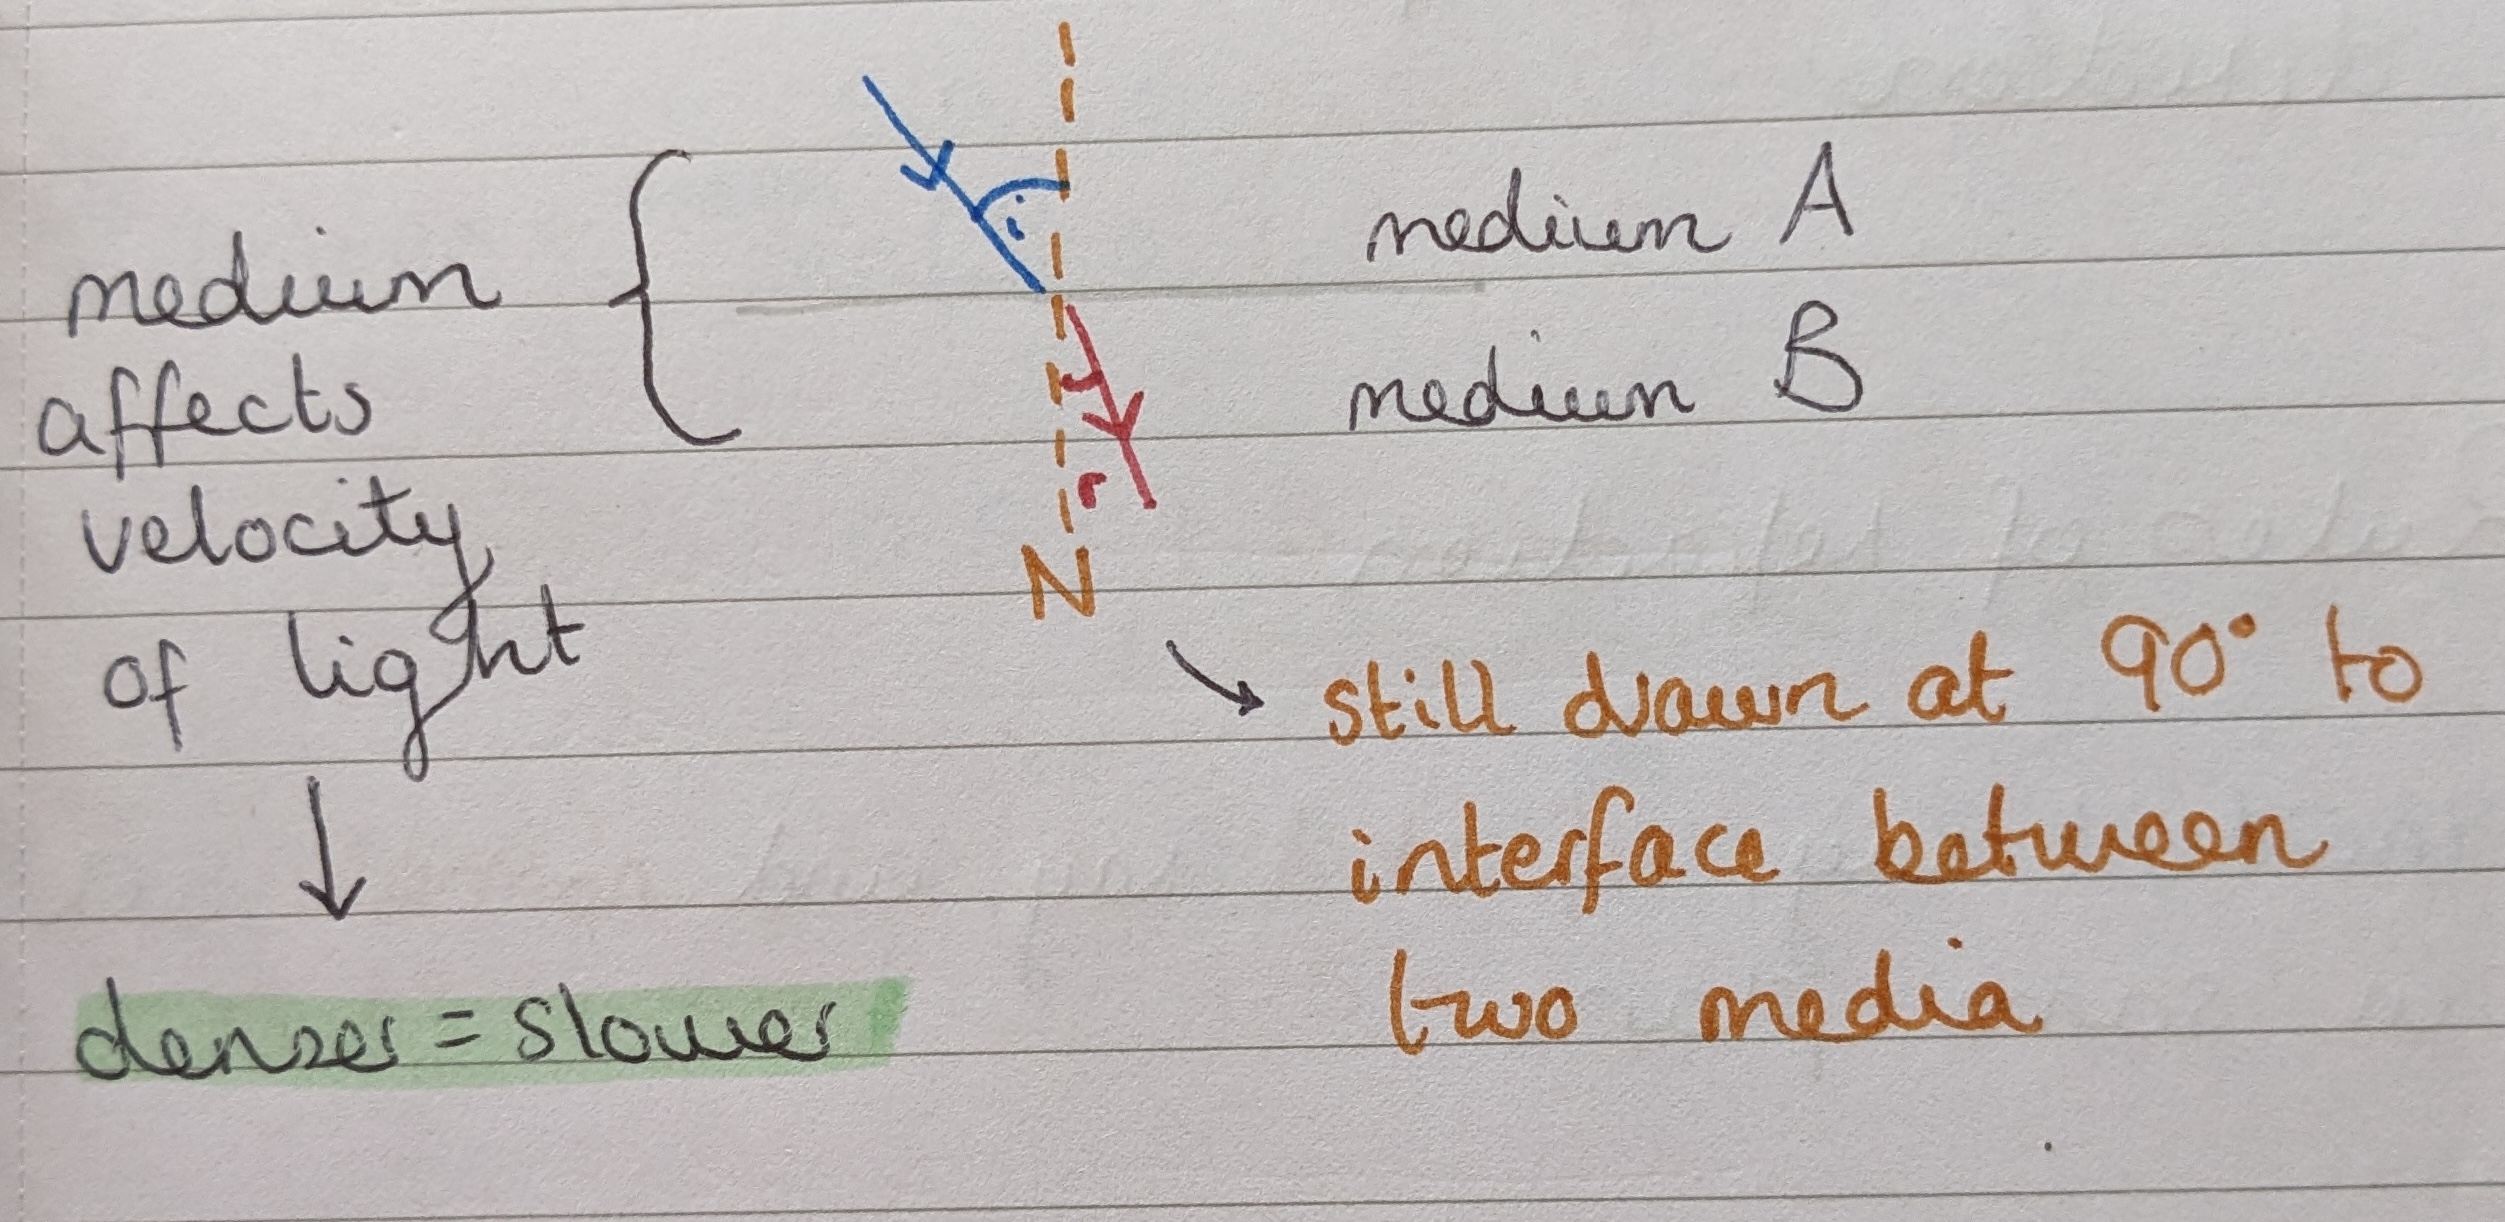 i
medium A
medium B
r
N
medium
affects
velocity
of light
denser = slower
still drawn at 90° to
interface between
two media